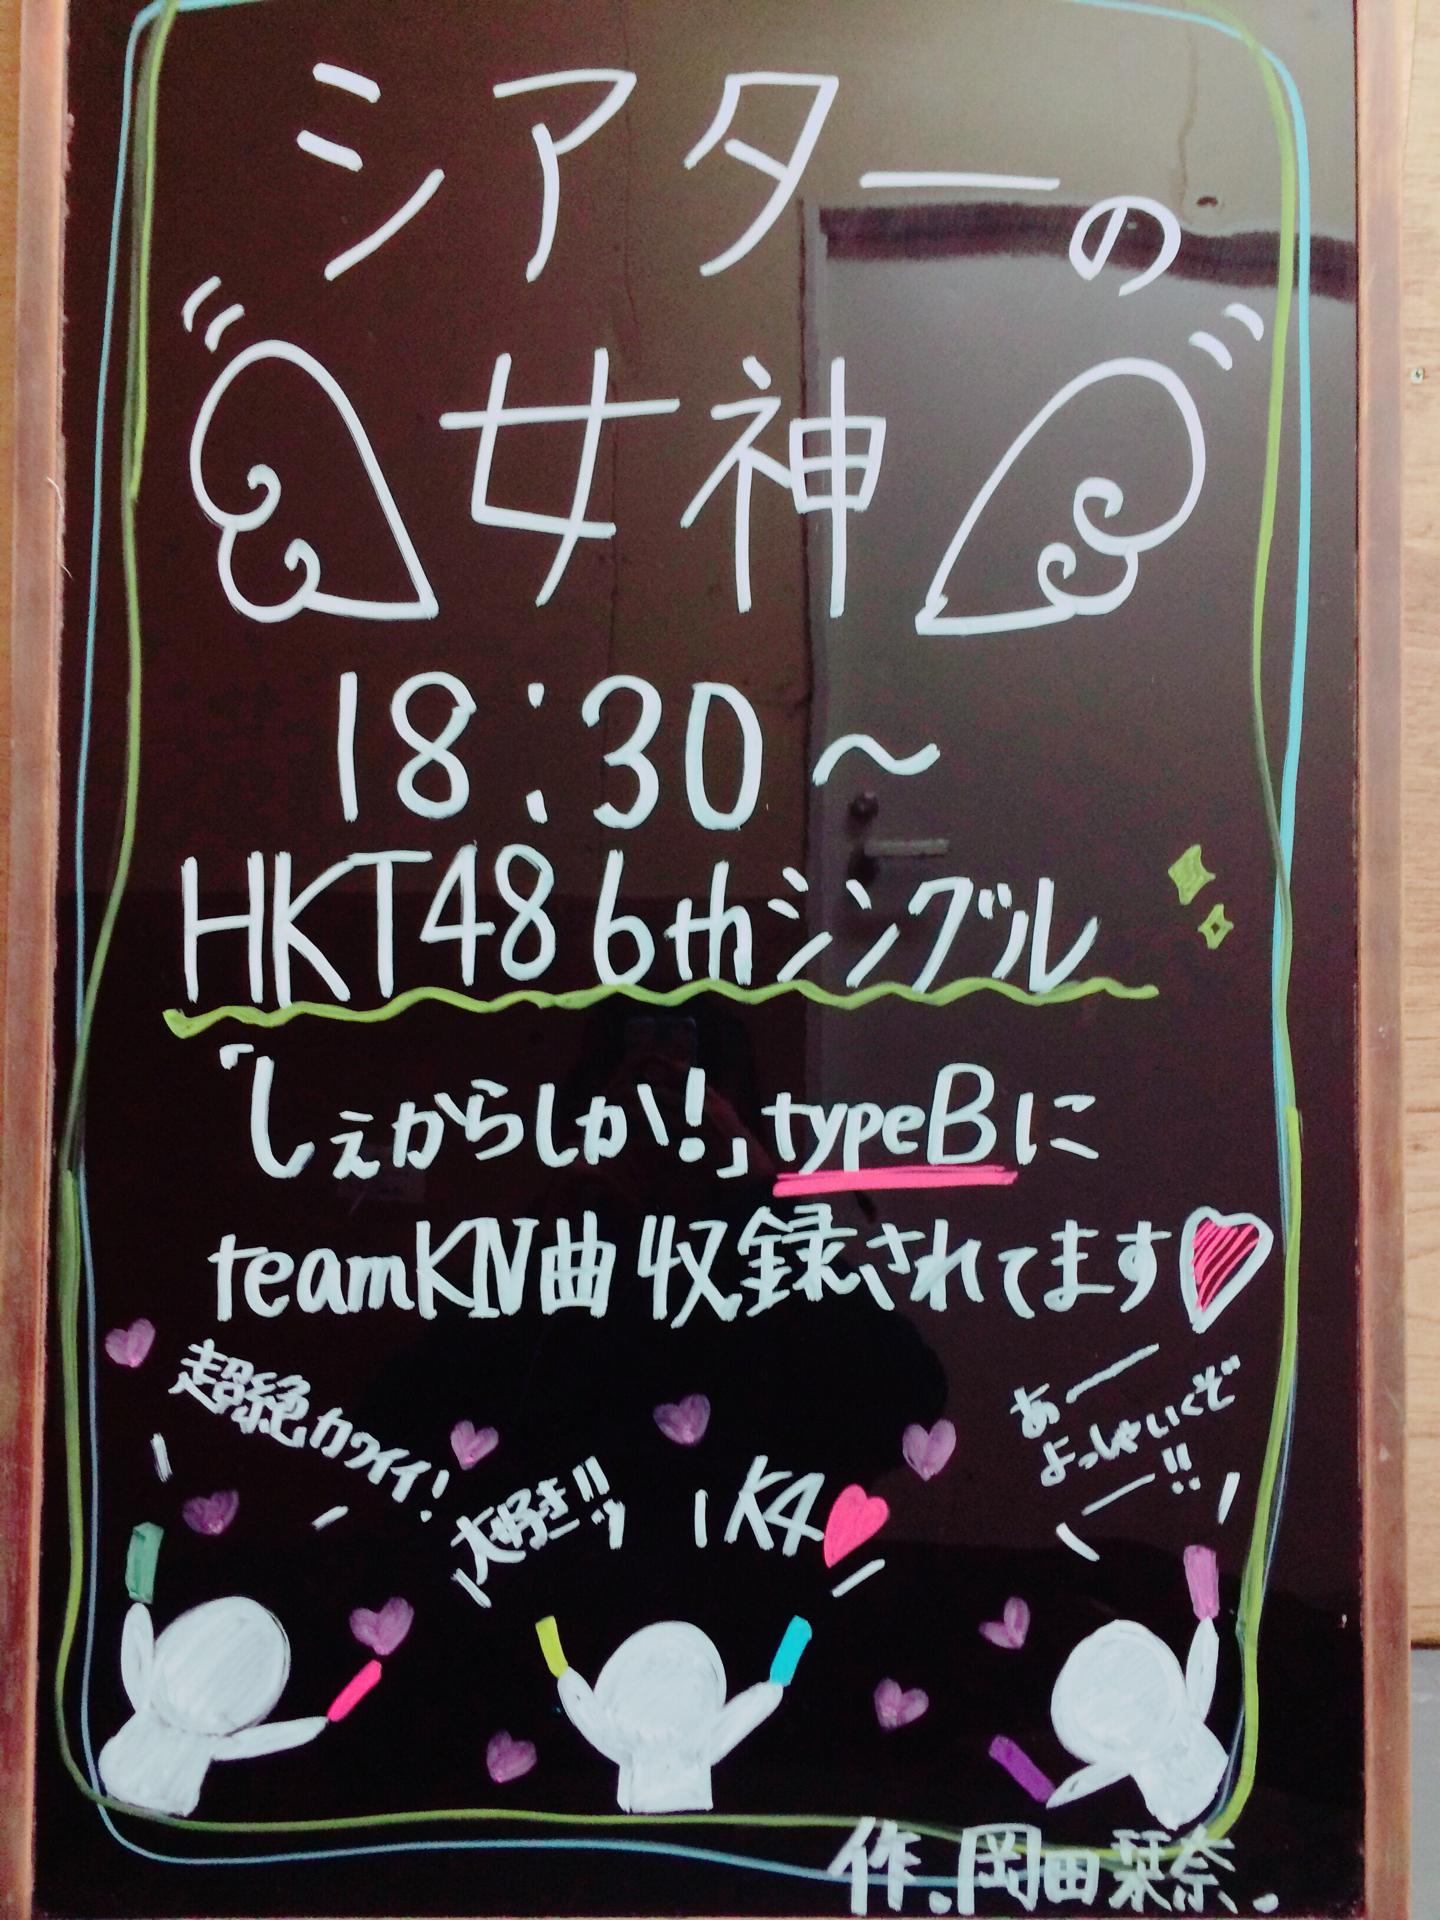 シアターの
女神
18:30～
HKT48 6thシングル
「しぇからしか!」typeBに
teamKⅣ曲 収録されてます
超絶カワイイ!
大好きーッ!!
K4
あー
よっしゃいくぞ
ー!!
作.岡田栞奈.